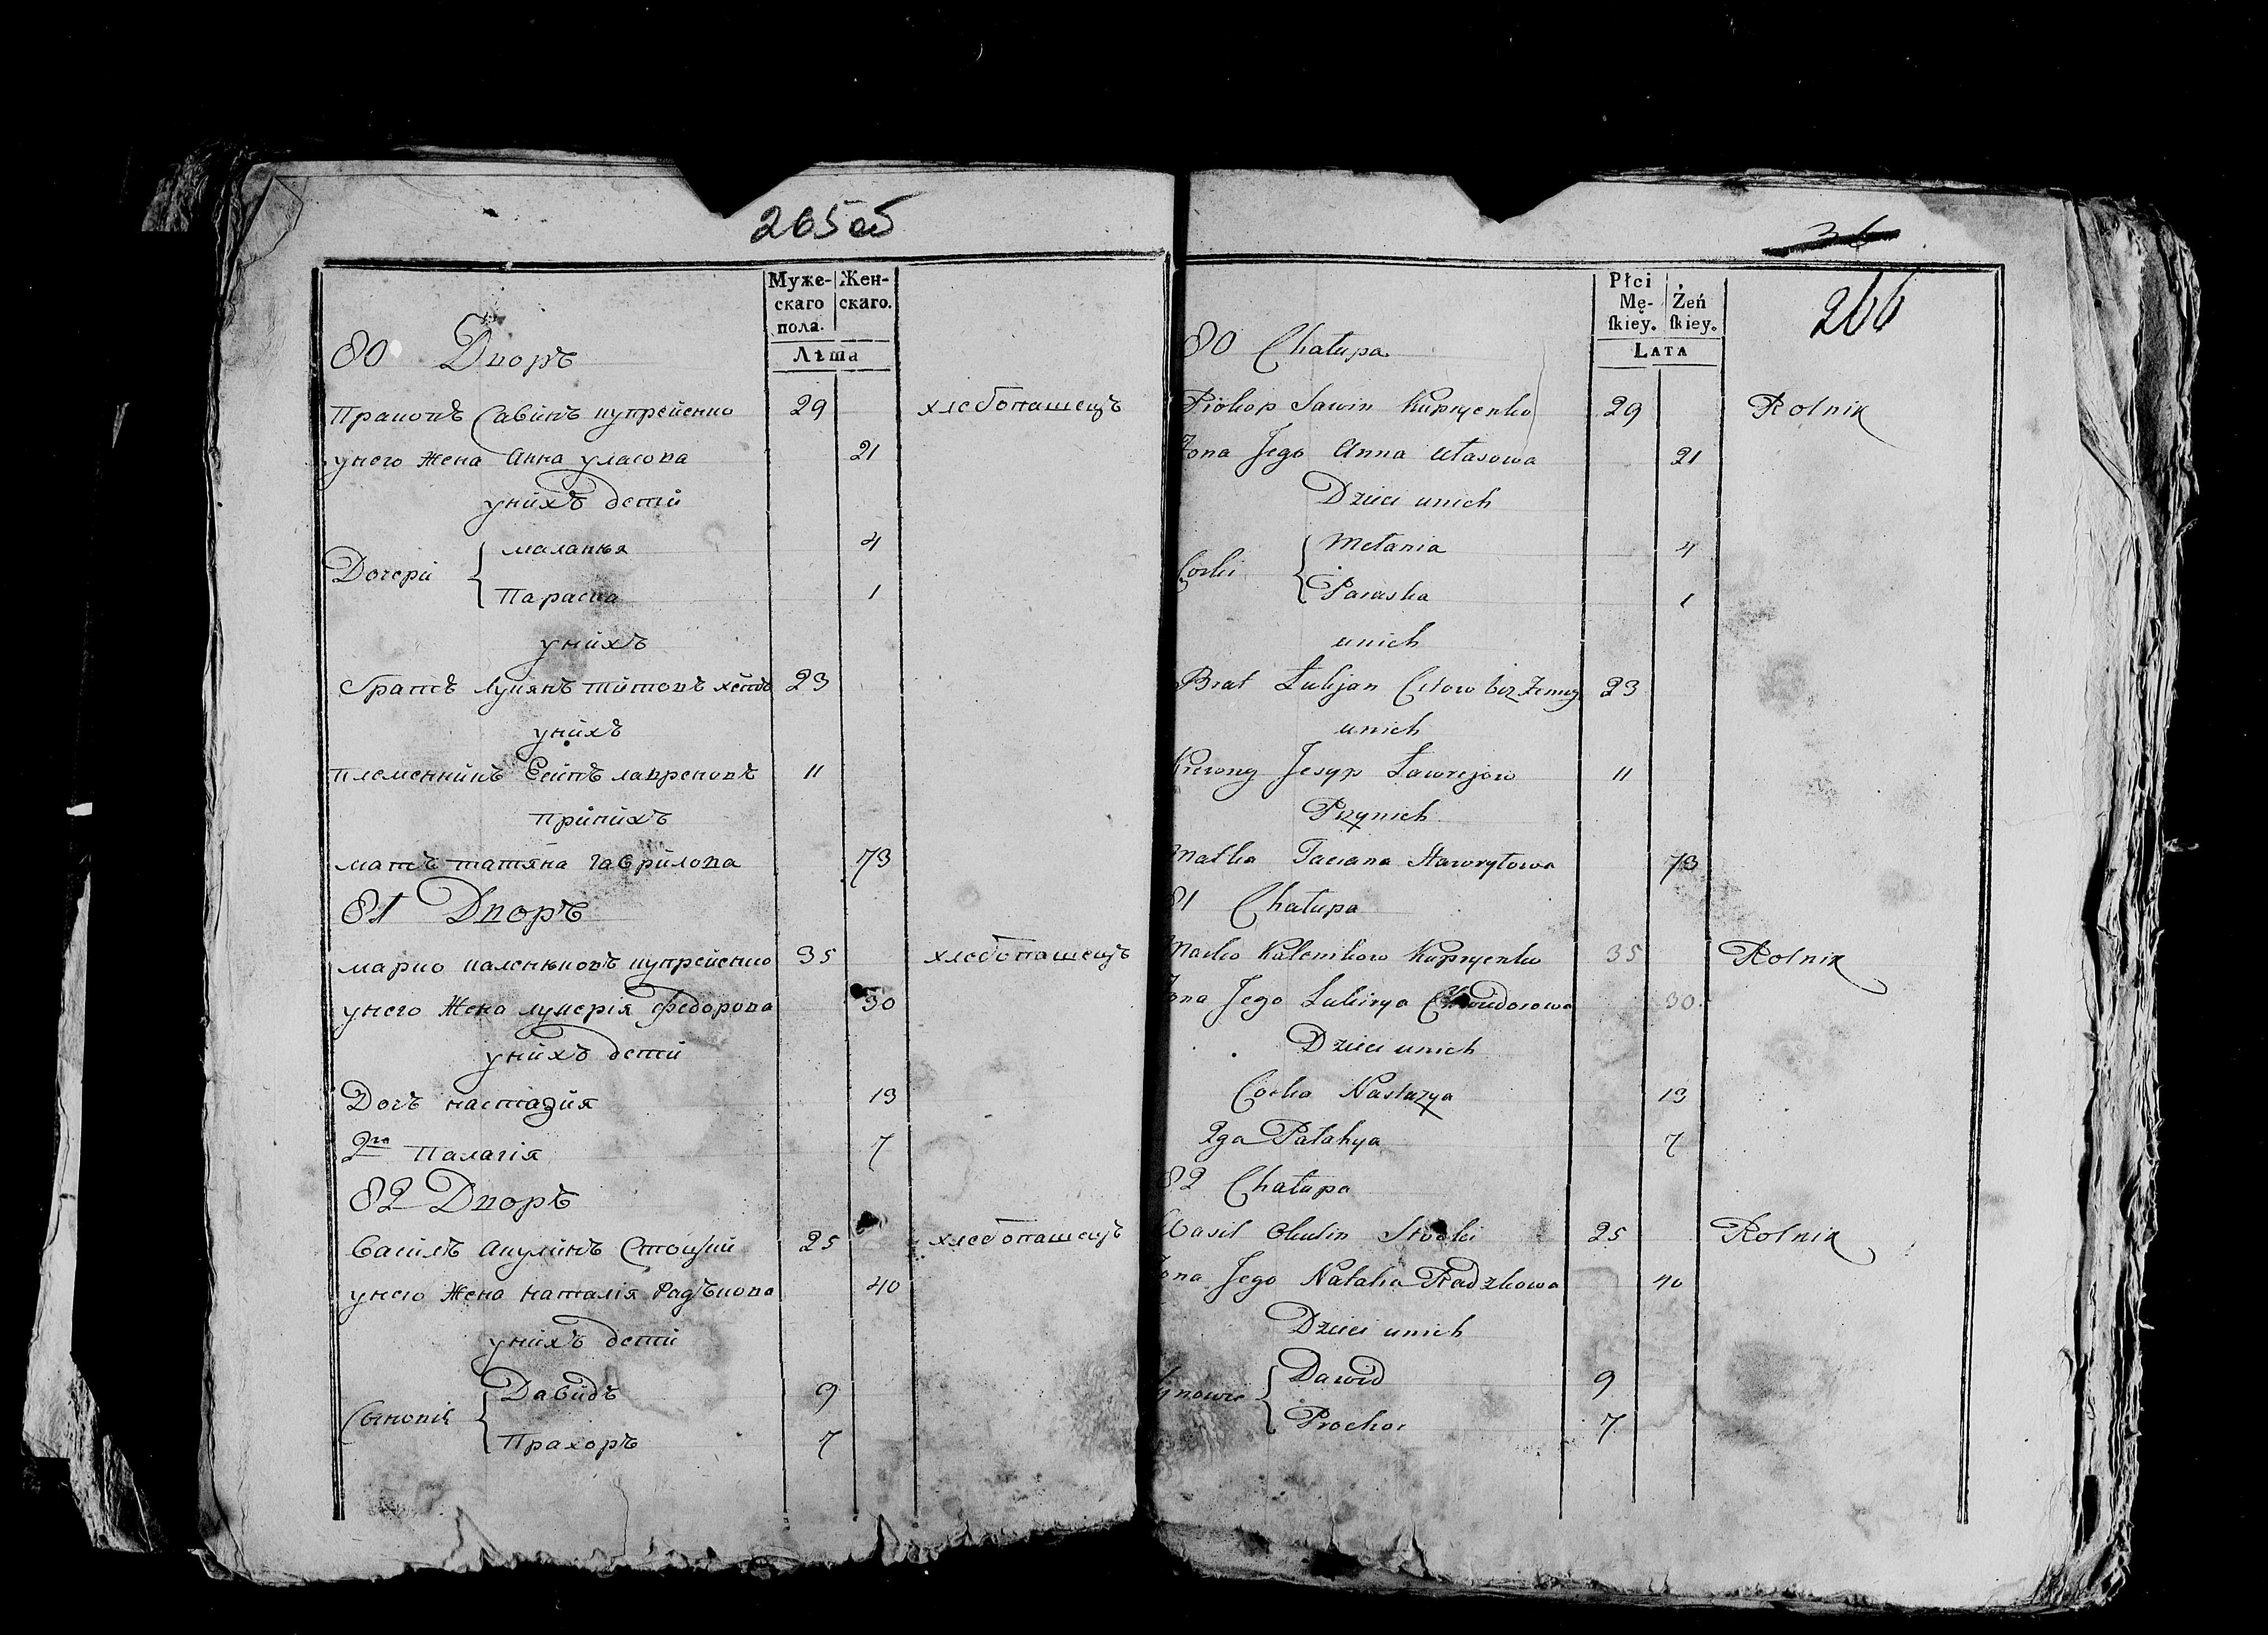 265об
Муже- Жен-
скаго скаго.
пола.
Лѣта
80 Дворъ
Пракопъ Савинъ купрейенко 29 хлебопашецъ
унего жена Анна уласова 21
унихъ дети
Дочери { маланья 4
Параска 1
унихъ
братъ лукянъ титовъ 23
унихъ
племенникъ Есипъ лавреновъ 11
принихъ
мать татяна гаврилова 73
81 Дворъ
марко каленковъ купрейенко 35 хлебопашецъ
унего жена лукерія федорова 30
унихъ дети
Дочъ настазия 13
2га Палагія 7
82 Дворъ
Василъ Акулинъ Стоцкий 25 хлебопашецъ
унего жена наталія Радъкова 40
унихъ дети
Сынови { Давидъ 9
Прахоръ 7
36
266
Płci
Mę- Żeń
ſkiey. ſkiey.
LATA
80 Chałupa
Prokop Sawin Kupryenko 29 Rolnik
Zona Jego Anna Ułasowa 21
Dzieci unich
Corki { Mełania 4
Paraska 1
unich
Brat Łukjan Citow bez żenny 23
unich
Krewny Jesyp Ławrejow 11
Przynich
Matka Taciana Hawryłowa 73
81 Chałupa
Marko Kalenikow Kupryenko 35 Rolnik
Zona Jego Łukirya Chwiudorowa 30
Dzieci unich
Corka Nastazya 13
2ga Pałahya 7
82 Chałupa
Wasil Okulin Stocki 25 Rolnik
Zona Jego Natalia Radzkowa 40
Dzieci unich
Synowie { Dawid 9
Prochor 7